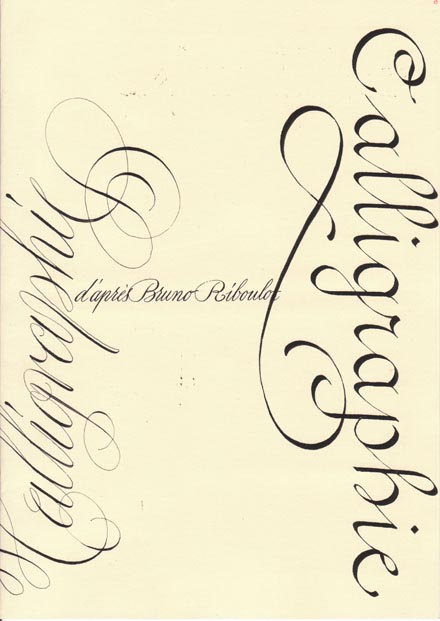 Calligraphie
d'après Bruno Riboulot
Calligraphie